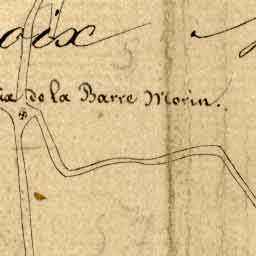 oix
ix de la Barre Morin.